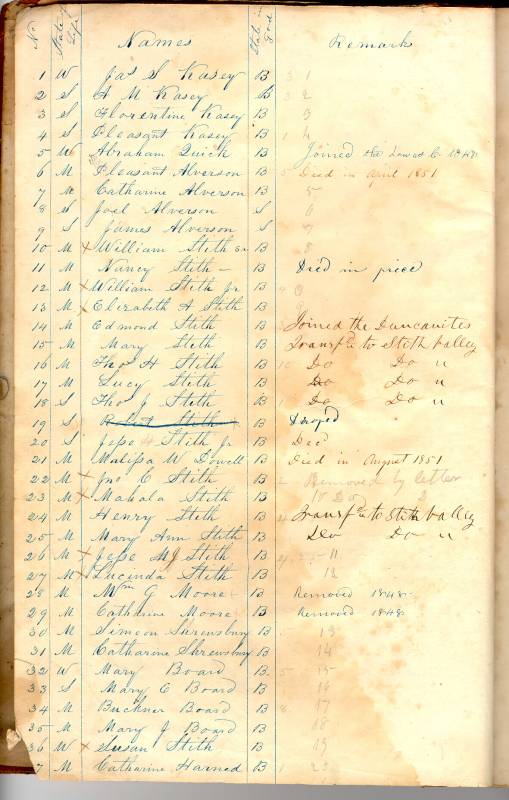 No State of Life Names State in God Remark
1 W Jas S Kasey B 3 1
2 S A M Kasey B 3 2
3 S Florentine Kasey B 3
4 S Pleasant Kasey B 1 4
5 W Abraham Quick B Joined the
6 M Pleasant Alverson B 5 Died in april 1851
7 M Catharine Alverson B 5
8 S Joel Alverson S 6
9 S James Alverson S 7
10 M x William Stith Sr B 8
11 M Nancy Stith B Died in piece
12 M x William Stith Jr B
13 M x Elizabeth A Stith B
14 M Edmond Stith B Joined the Duncanites
15 M Mary Stith B Transfd to Stith valley
16 M Thos H Stith B 10 Do Do u
17 M Lucy Stith B Do Do u
18 S Thos J Stith B Do Do u
19 S Stith B Droped
20 S Jesse Stith Jr B Ded
21 M Malissa W Dowell B Died in August 1851
22 M x Jno C Stith B 2 Removed by letter
23 M x Mahala Stith B Do
24 M Henry Stith B 4 Transfd to Stith valley
25 M Mary Ann Stith B Do Do u
26 M x Jesse M J Stith B 4 11
27 M x Lucinda Stith B 12
28 M Wm G Moore B Removed 1848
29 M Catharine Moore B Removed 1848
30 M Simeon Shrewsbury B 13
31 M Catharine Shrewsbury B 14
32 W Mary Board B 5 15
33 S Mary E Board B 16
34 M Buckner Board B 8 17
35 M Mary J Board B 18
36 W x Susan Stith B 19
7 M Catharine Harned B 1